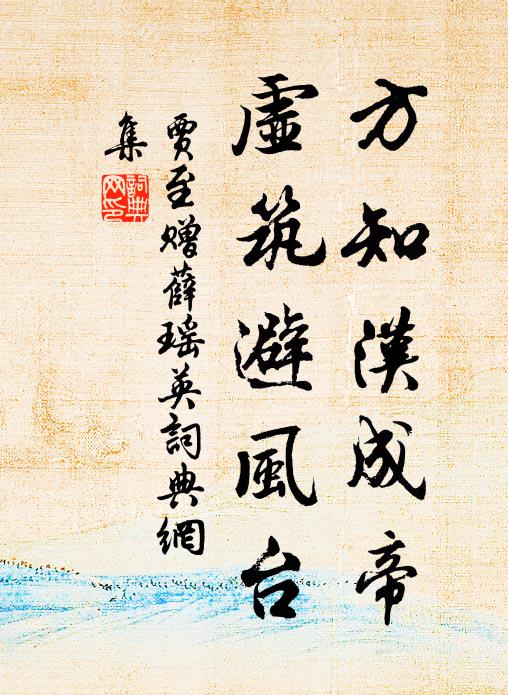 方知漢成帝
虛筑避風台
賈至贈薛瑶英詞典網
集
詞典
网印